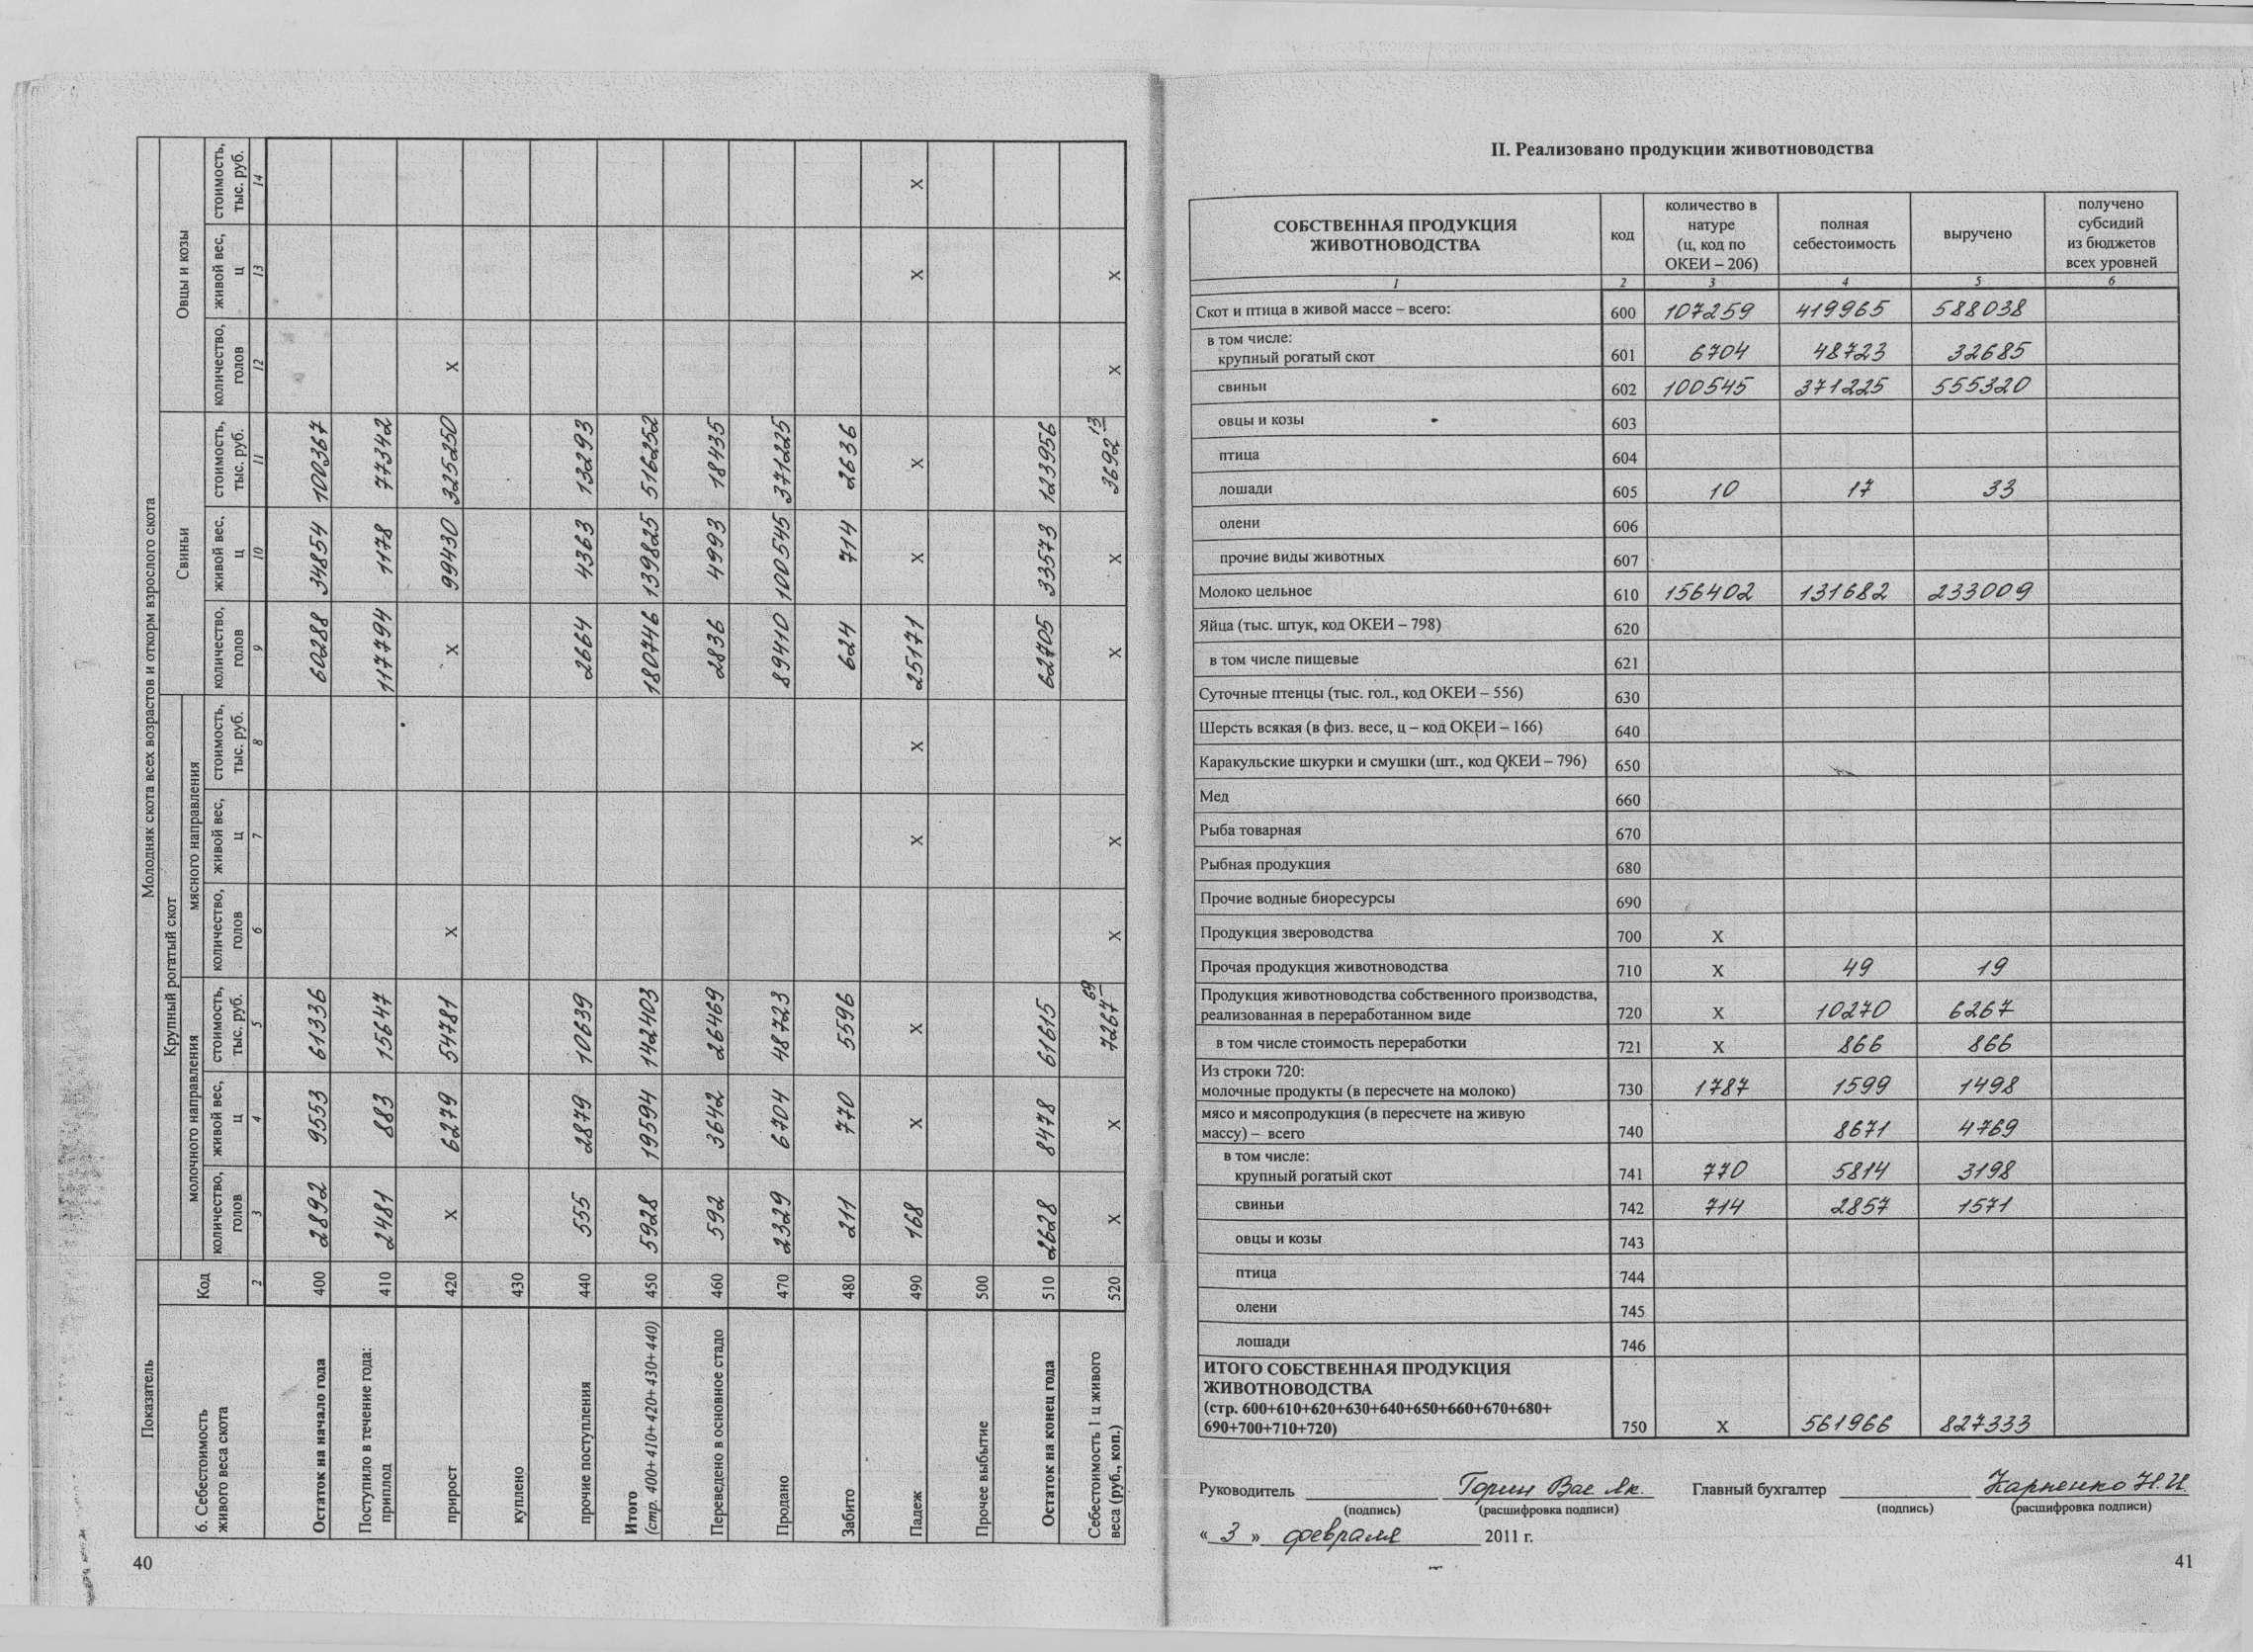 Показатель
Код
Молодняк скота всех возрастов и откорм взрослого скота
Крупный рогатый скот
Свиньи
Овцы и козы
молочного направления
мясного направления
6. Себестоимость
живого веса скота
количество, голов
живой вес, ц
стоимость, тыс. руб.
количество, голов
живой вес, ц
стоимость, тыс. руб.
количество, голов
живой вес, ц
стоимость, тыс. руб.
количество, голов
живой вес, ц
стоимость, тыс. руб.
2 3 4 5 6 7 8 9 10 11 12 13 14
Остаток на начало года 400 2892 9553 61336 60288 34854 100367
Поступило в течение года:
приплод 410 2481 883 15647 117794 1178 77342
прирост 420 X 6279 54781 X X 99430 325250 X
куплено 430
прочие поступления 440 555 2879 10639 2664 4363 13293
Итого
(стр. 400+410+420+430+440) 450 5928 19594 142403 180746 139825 516252
Переведено в основное стадо 460 592 3642 26469 2836 4993 18435
Продано 470 2329 6704 48723 89410 100545 371225
Забито 480 211 770 5596 624 714 2636
Падеж 490 168 X X X X 25171 X X X X
Прочее выбытие 500
Остаток на конец года 510 2628 8478 61615 62705 33573 123956
Себестоимость 1 ц живого
веса (руб., коп.) 520 X X 7267 69 X X X X 3692 13 X X
40
II. Реализовано продукции животноводства
СОБСТВЕННАЯ ПРОДУКЦИЯ
ЖИВОТНОВОДСТВА
код
количество в
натуре
(ц, код по
ОКЕИ – 206)
полная
себестоимость
выручено
получено
субсидий
из бюджетов
всех уровней
1 2 3 4 5 6
Скот и птица в живой массе – всего: 600 107259 419965 588038
в том числе:
крупный рогатый скот 601 6704 48723 32685
свиньи 602 100545 371225 555320
овцы и козы 603
птица 604
лошади 605 10 17 33
олени 606
прочие виды животных 607
Молоко цельное 610 156402 131682 233009
Яйца (тыс. штук, код ОКЕИ – 798) 620
в том числе пищевые 621
Суточные птенцы (тыс. гол., код ОКЕИ – 556) 630
Шерсть всякая (в физ. весе, ц – код ОКЕИ – 166) 640
Каракульские шкурки и смушки (шт., код ОКЕИ – 796) 650
Мед 660
Рыба товарная 670
Рыбная продукция 680
Прочие водные биоресурсы 690
Продукция звероводства 700 X
Прочая продукция животноводства 710 X 49 19
Продукция животноводства собственного производства,
реализованная в переработанном виде 720 X 10270 6267
в том числе стоимость переработки 721 X 866 866
Из строки 720:
молочные продукты (в пересчете на молоко) 730 1787 1599 1498
мясо и мясопродукция (в пересчете на живую
массу) – всего 740 8671 4769
в том числе:
крупный рогатый скот 741 770 5814 3198
свиньи 742 714 2857 1571
овцы и козы 743
птица 744
олени 745
лошади 746
ИТОГО СОБСТВЕННАЯ ПРОДУКЦИЯ
ЖИВОТНОВОДСТВА
(стр. 600+610+620+630+640+650+660+670+680+
690+700+710+720) 750 X 561966 827333
Руководитель Горин Вас Як. Главный бухгалтер Карпенко Н.И.
(подпись) (расшифровка подписи) (подпись) (расшифровка подписи)
« 3 » февраля 2011 г.
41